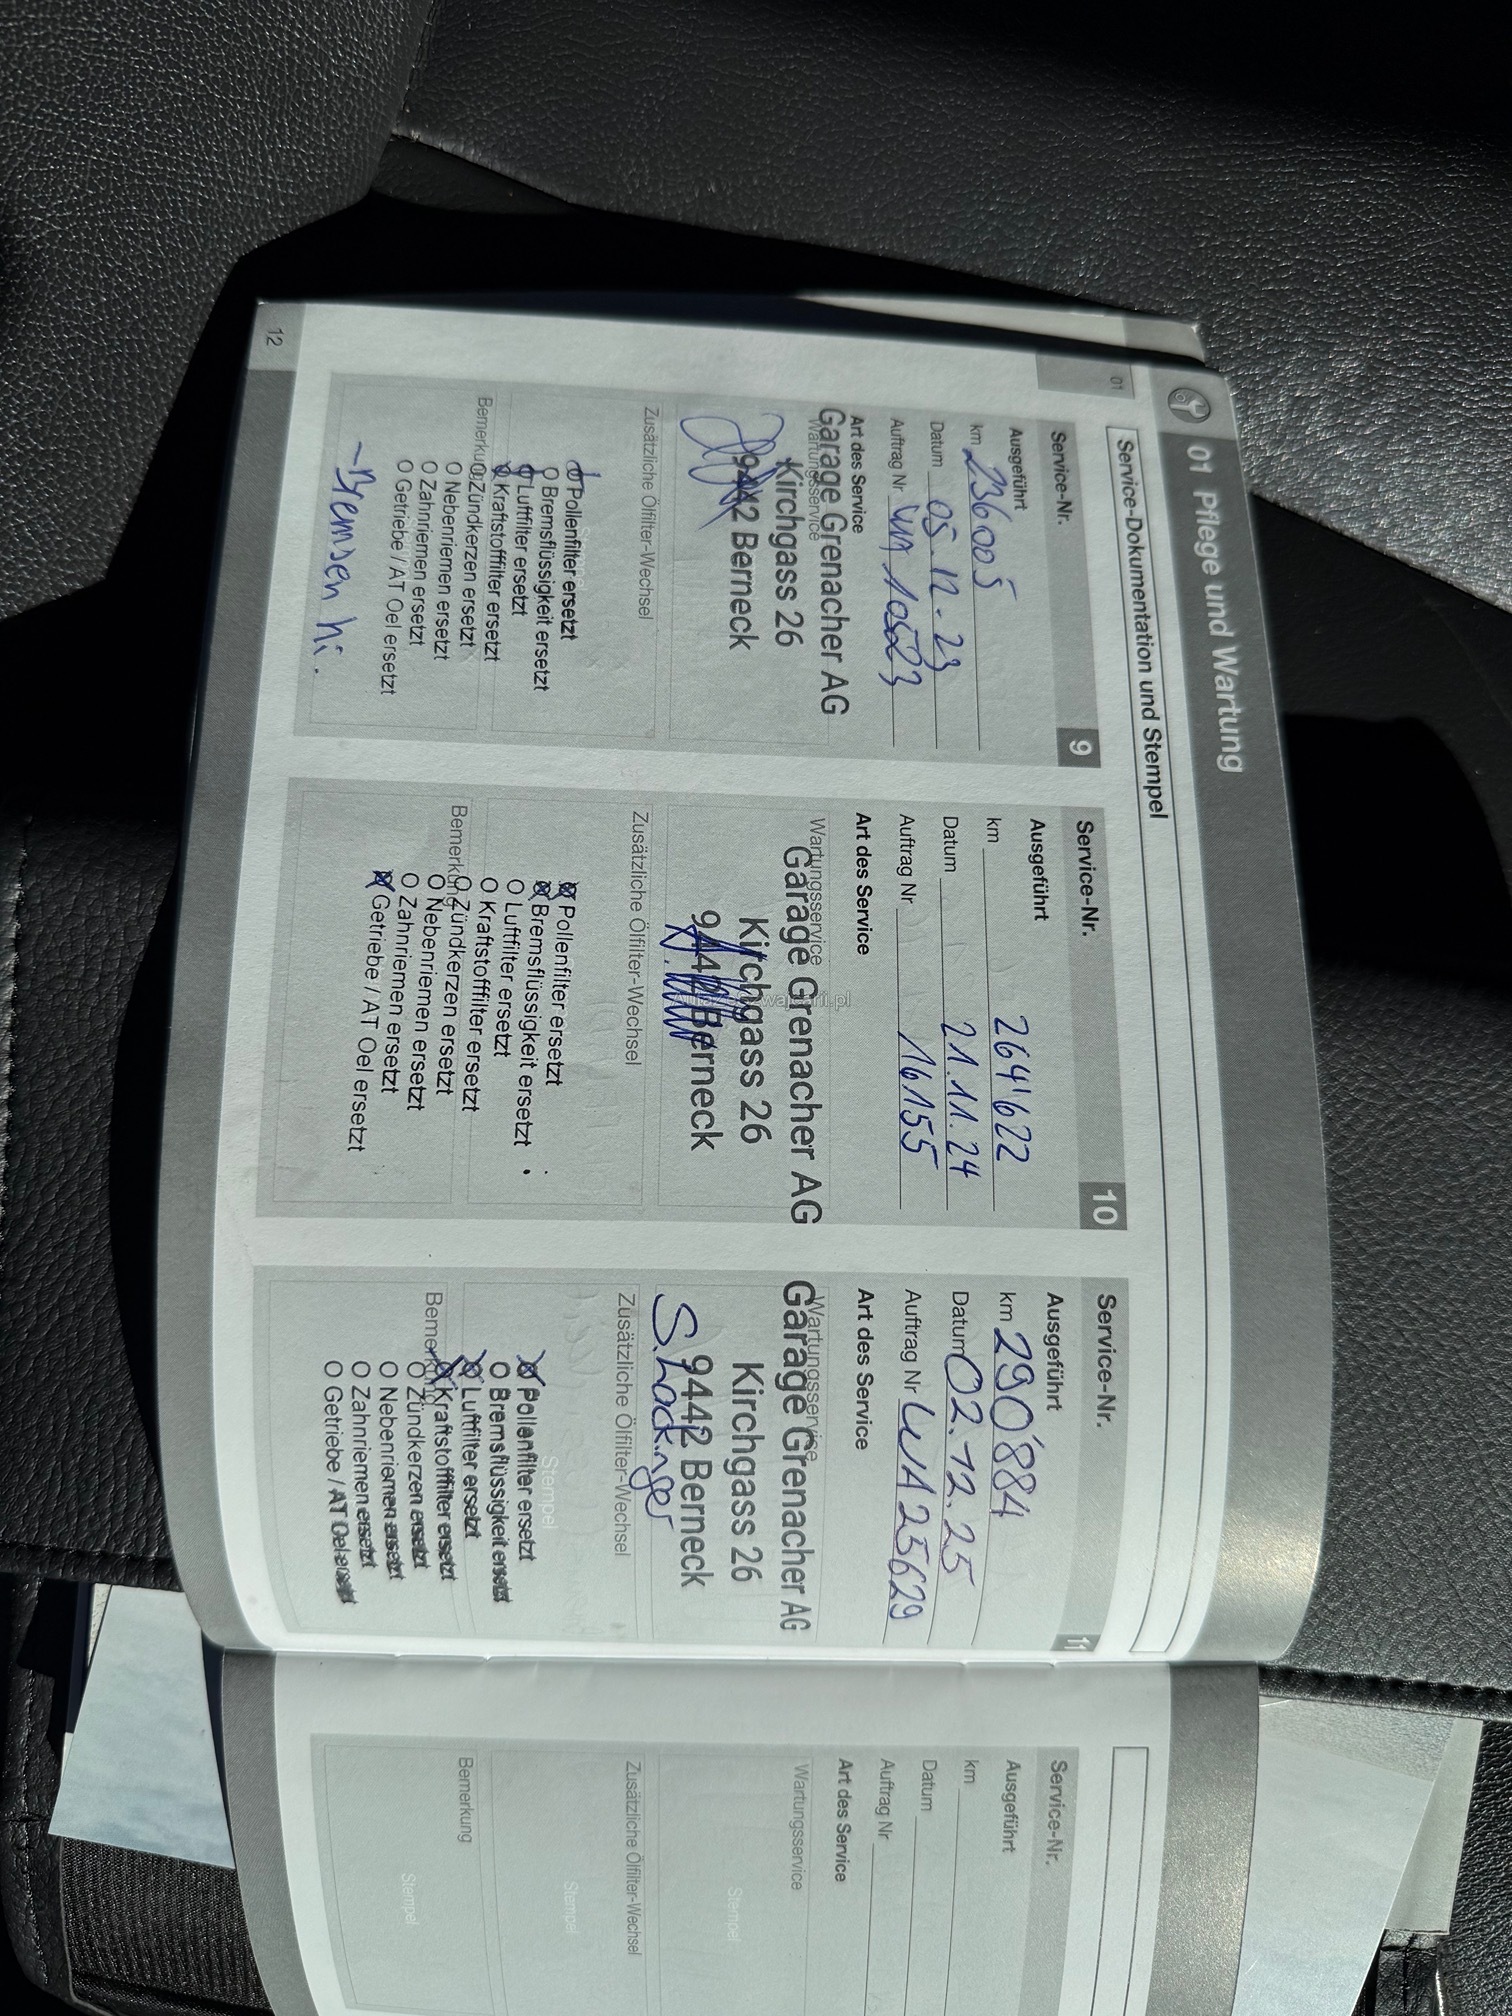 01 Pflege und Wartung
01
Service-Dokumentation und Stempel
Service-Nr. 9
Ausgeführt
km 236005
Datum 05.12.23
Auftrag Nr WA 10523
Art des Service
Wartungsservice
Garage Grenacher AG
Kirchgass 26
9442 Berneck
Zusätzliche Ölfilter-Wechsel
Pollenfilter ersetzt
Bremsflüssigkeit ersetzt
Luftfilter ersetzt
Kraftstofffilter ersetzt
Bemerkung
Zündkerzen ersetzt
Nebenriemen ersetzt
Zahnriemen ersetzt
Getriebe / AT Oel ersetzt
- Bremsen hi.
12
Service-Nr. 10
Ausgeführt
km 264'622
Datum 21.11.24
Auftrag Nr 16155
Art des Service
Wartungsservice
Garage Grenacher AG
Kirchgass 26
9442 Berneck
Zusätzliche Ölfilter-Wechsel
Pollenfilter ersetzt
Bremsflüssigkeit ersetzt
Luftfilter ersetzt
Kraftstofffilter ersetzt
Bemerkung
Zündkerzen ersetzt
Nebenriemen ersetzt
Zahnriemen ersetzt
Getriebe / AT Oel ersetzt
Service-Nr. 11
Ausgeführt
km 290'884
Datum 02.12.25
Auftrag Nr WA25629
Art des Service
Wartungsservice
Garage Grenacher AG
Kirchgass 26
9442 Berneck
Zusätzliche Ölfilter-Wechsel
Stempel
Pollenfilter ersetzt
Bremsflüssigkeit ersetzt
Luftfilter ersetzt
Kraftstofffilter ersetzt
Bemerkung
Zündkerzen ersetzt
Nebenriemen ersetzt
Zahnriemen ersetzt
Getriebe / AT Oel ersetzt
Service-Nr.
Ausgeführt
km
Datum
Auftrag Nr
Art des Service
Wartungsservice
Stempel
Zusätzliche Ölfilter-Wechsel
Stempel
Bemerkung
Stempel